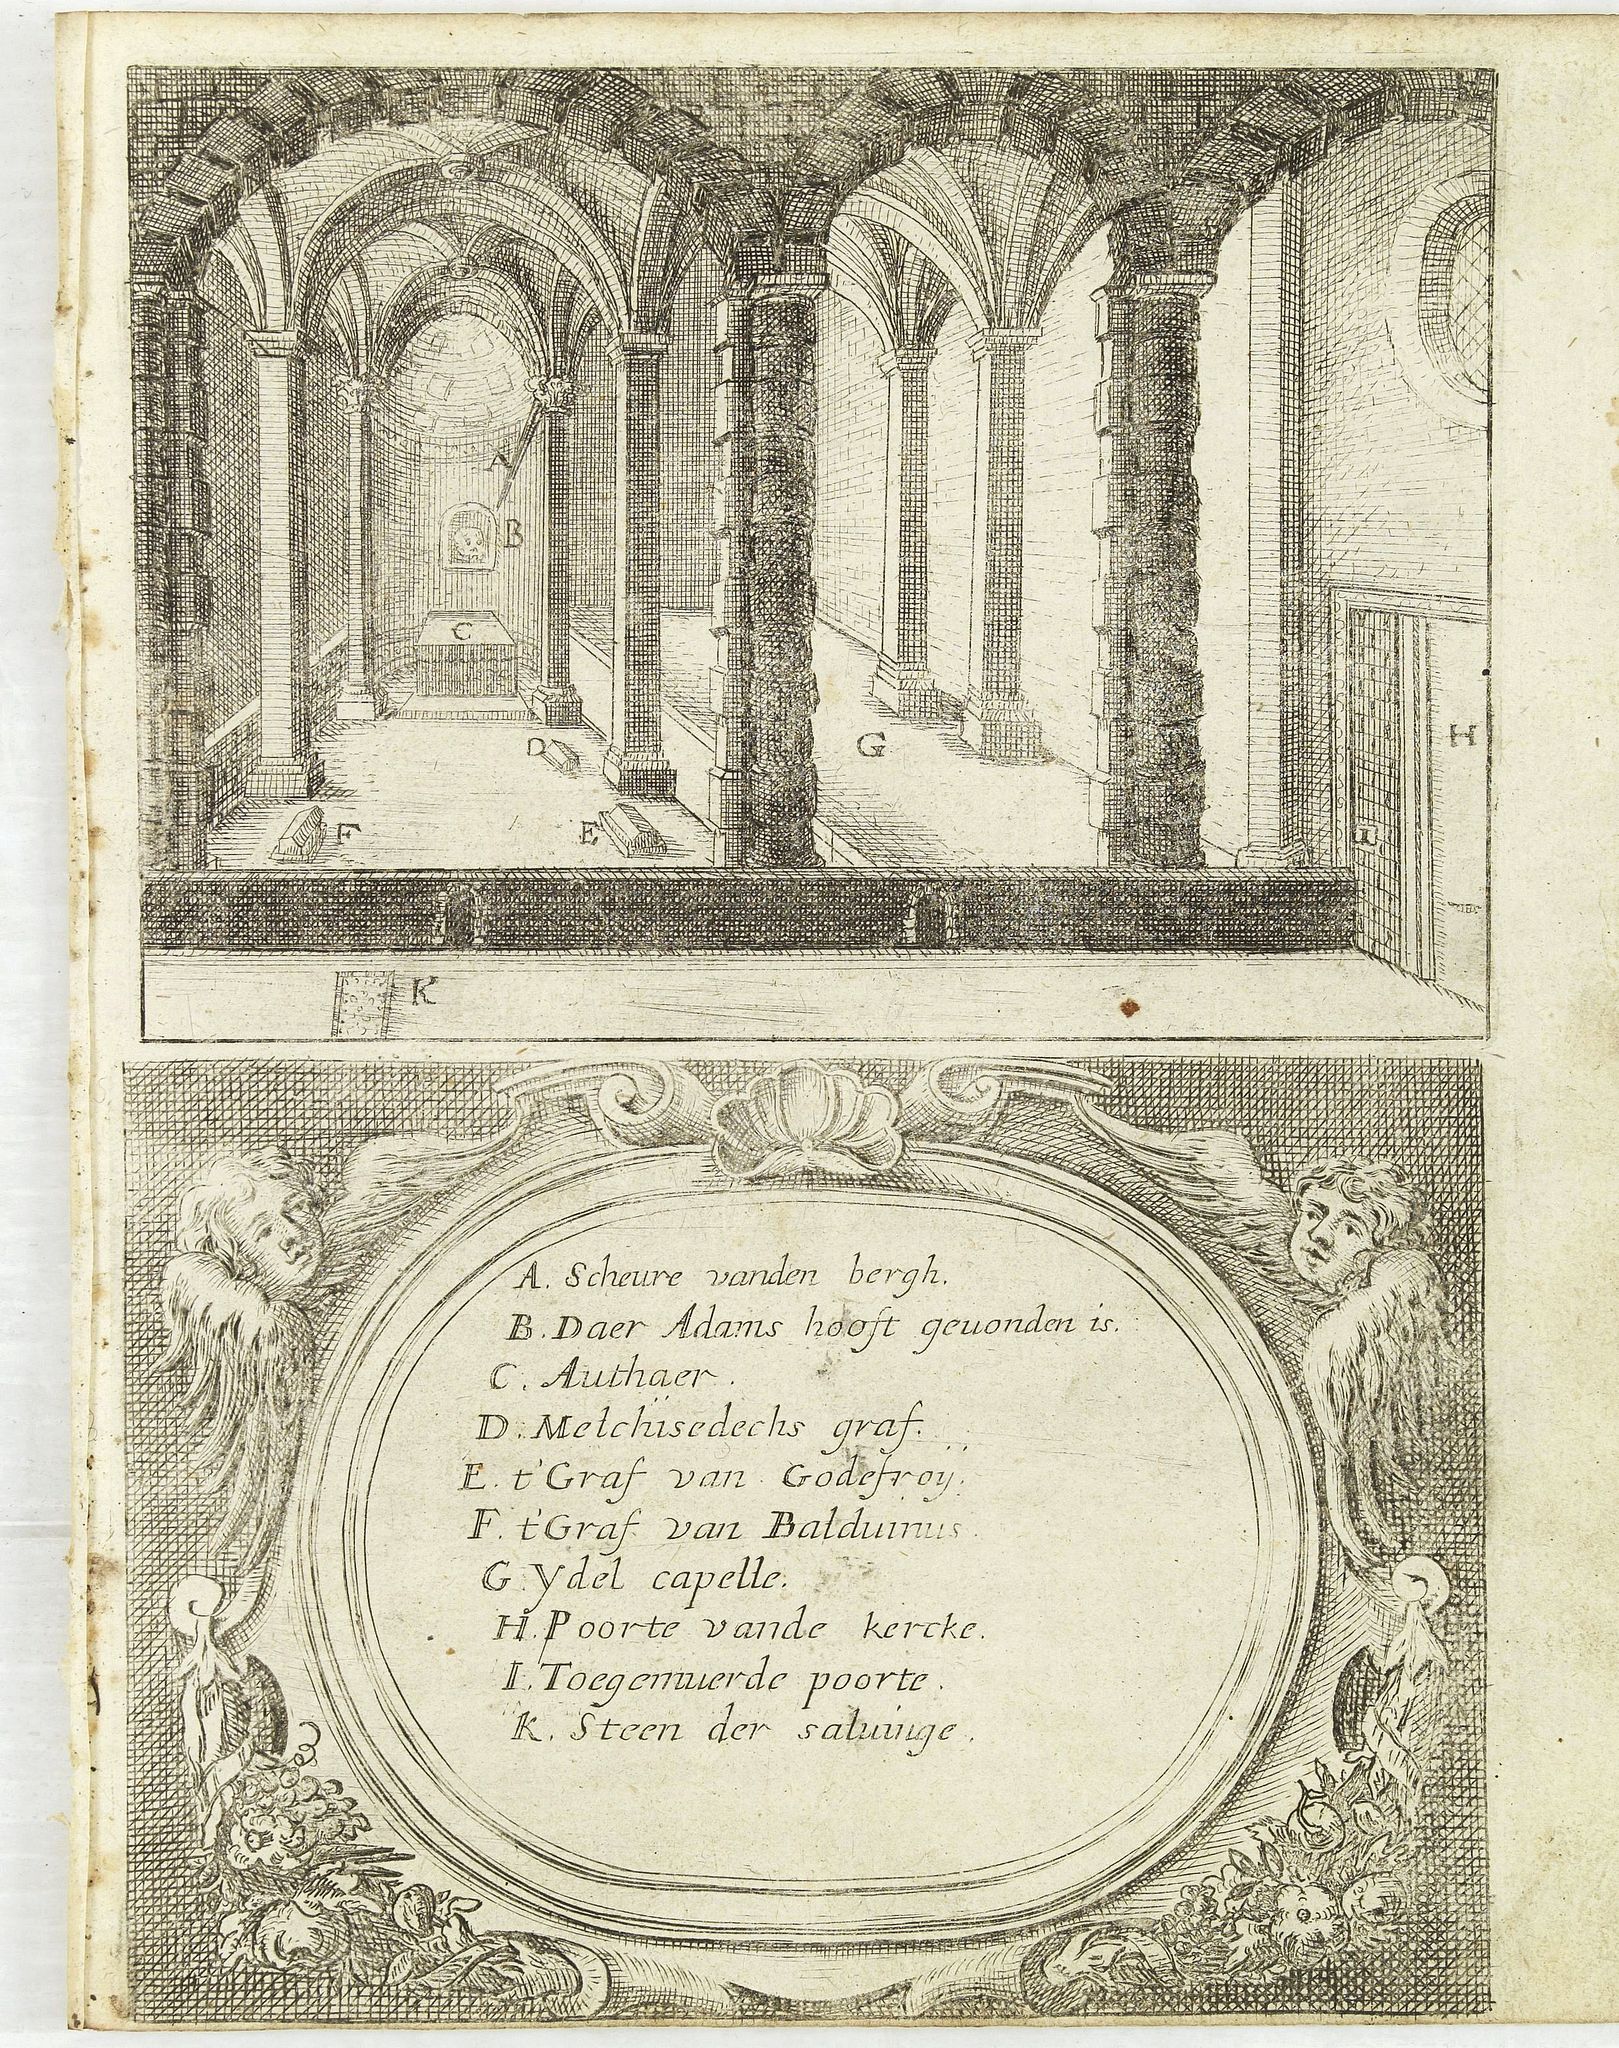 A
B
C
D
G
H
F
E
I
K
A. Scheure vanden bergh.
B. Daer Adams hooft geuonden is.
C. Authaer.
D. Melchisedechs graf.
E. t'Graf van Godefroÿ.
F. t'Graf van Balduinus.
G. Ydel capelle.
H. Poorte vande kercke.
I. Toegemuerde poorte.
K. Steen der saluinge.